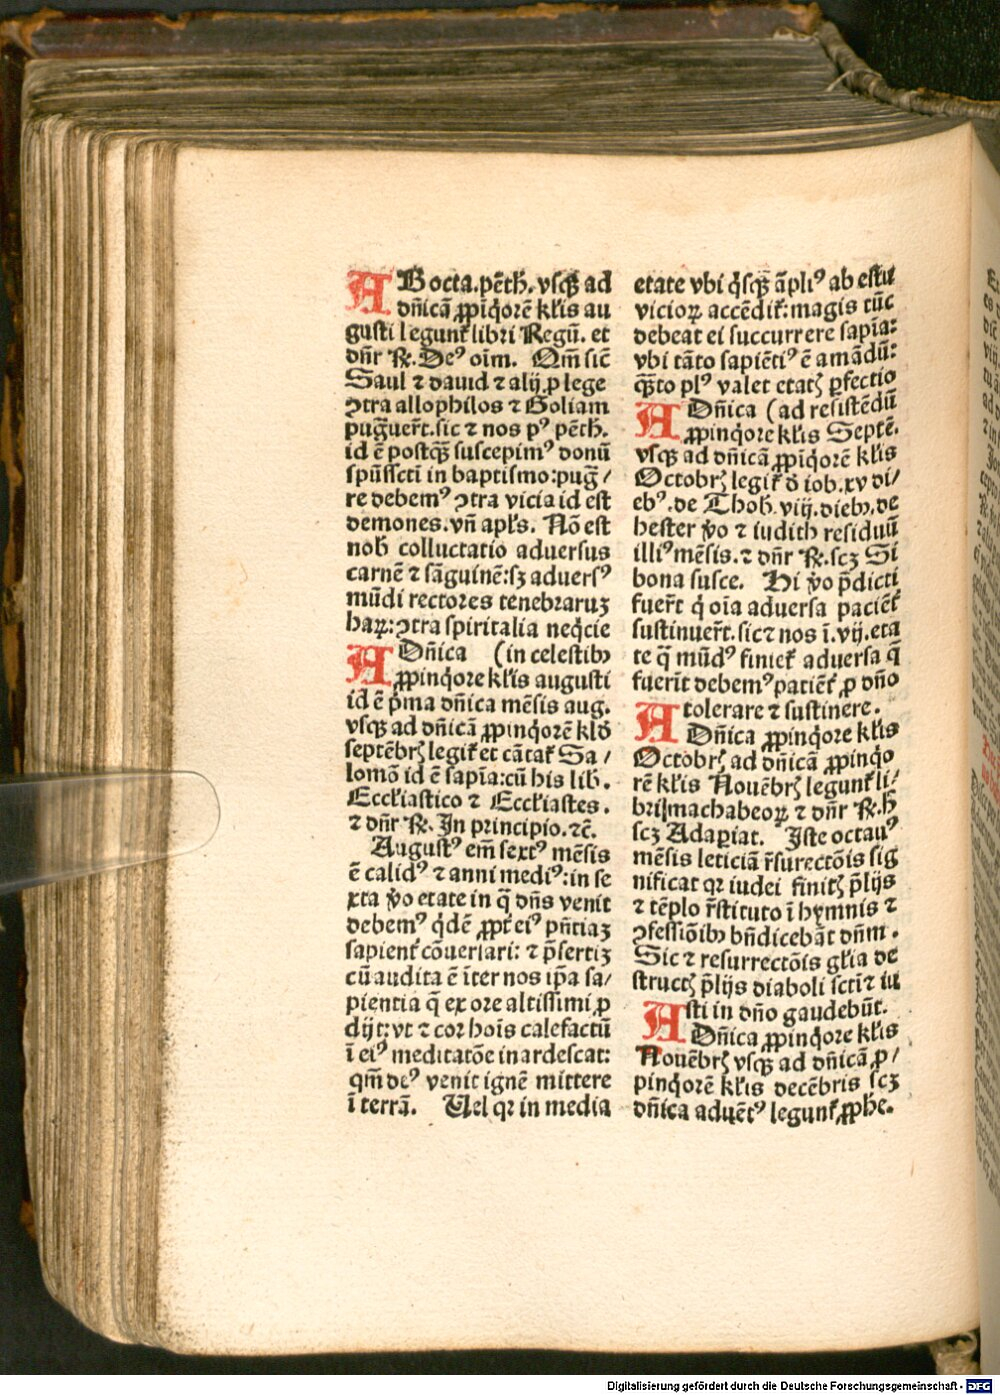 AB octa. pēth̄. vsqꝫ ad
dn̄icā ꝓpīq̇orē kl̄is au
gusti legunt̄ libri Regū. et
dn̄r ℟. De⁹ oīm. Qm̄ sic̄
Saul ⁊ dauid ⁊ alij ꝓ lege
ꝯtra allophilos ⁊ Goliam
pug̃uer̄t. sic ⁊ nos p⁹ pēth̄.
id ē postqꝫ̄ suscepim⁹ donū
spūssctī in baptismo: pug̃/
re debem⁹ ꝯtra vicia id est
demones. vn̄ apl̄s. Nō est
nob̄ colluctatio aduersus
carnē ⁊ sāguinē: sꝫ aduers⁹
mūdi rectores tenebraruꝫ
haꝝ: ꝯtra spiritalia neq̇cie
A Dn̄ica (in celestibꝫ
ꝓpinq̇ore kl̄is augusti
id ē pͥma dn̄ica mēsis aug.
vsqꝫ ad dn̄icā ꝓpinq̇orē kl̄d̄
septēbrꝭ legit̄ et cātat̄ Sa/
lomō id ē sapīa: cū his lib̄.
Eccl̄iastico ⁊ Eccl̄iastes.
⁊ dn̄r ℟. In principio. ⁊c̄.
August⁹ em̄ sext⁹ mēsis
ē calid⁹ ⁊ anni medi⁹: in se
xta v̊o etate in q̄ dn̄s venit
debem⁹ q̇dē ꝓpt̄ ei⁹ pn̄tiaꝫ
sapient̄ cōuersari: ⁊ p̄sertiꝫ
cū audita ē īter nos ip̄a sa/
pientia q̄ ex ore altissimi ꝓ
dijt: vt ⁊ cor hoīs calefactū
ī ei⁹ meditatōe inardescat:
qm̄ de⁹ venit ignē mittere
ī terrā. Uel qꝛ in media
etate vbi q̇sqꝫ̄ āpli⁹ ab estu
vicioꝝ accēdit̄: magis tūc
debeat ei succurrere sapīa:
vbi tāto sapiēti⁹ ē amādū:
qꝫ̄to pl⁹ valet etatꝭ ꝑfectio
A Dn̄ica (ad resistēdū
ꝓpinq̇ore kl̄is Septē.
vsqꝫ ad dn̄icā ꝓpīq̇orē kl̄is
Octobrꝭ legit̄ d̄ iob. xv di/
eb⁹. de Thob̄. viij. diebꝫ. de
hester v̊o ⁊ iudith residuū
illi⁹ mēsis. ⁊ dn̄r ℟. scꝫ Si
bona susce. Hi v̊o p̄dicti
fuer̄t q̇ oīa aduersa pacient̄
sustinuer̄t. sic ⁊ nos ī. vij. eta
te q̄ mūd⁹ finiet̄ aduersa q̄
fuerīt debem⁹ patient̄ ꝓ dn̄o
tolerare ⁊ sustinere.
A Dn̄ica ꝓpinq̇ore kl̄is
Octobrꝭ ad dn̄icā ꝓpinq̇o
rē kl̄is Nouēbrꝭ legunt̄ li/
bri machabeoꝝ ⁊ dn̄r ℟. h̄
scꝫ Adaꝑiat. Iste octau⁹
mēsis leticiā r̄surectōis sig
nificat qꝛ iudei finitꝭ p̄lijs
⁊ tēplo r̄stituto ī hymnis ⁊
ꝯfessiōibꝫ bn̄dicebāt dn̄m.
Sic ⁊ resurrectōis gl̄ia de
structꝭ p̄lijs diaboli scti ⁊ iu
sti in dn̄o gaudebūt.
A Dn̄ica ꝓpinq̇ore kl̄is
Nouēbrꝭ vsqꝫ ad dn̄icā ꝓ/
pinq̇orē kl̄is decēbris scꝫ
dn̄ica aduēt⁹ legunt̄ ꝓph̄e.
Digitalisierung gefördert durch die Deutsche Forschungsgemeinschaft - DFG